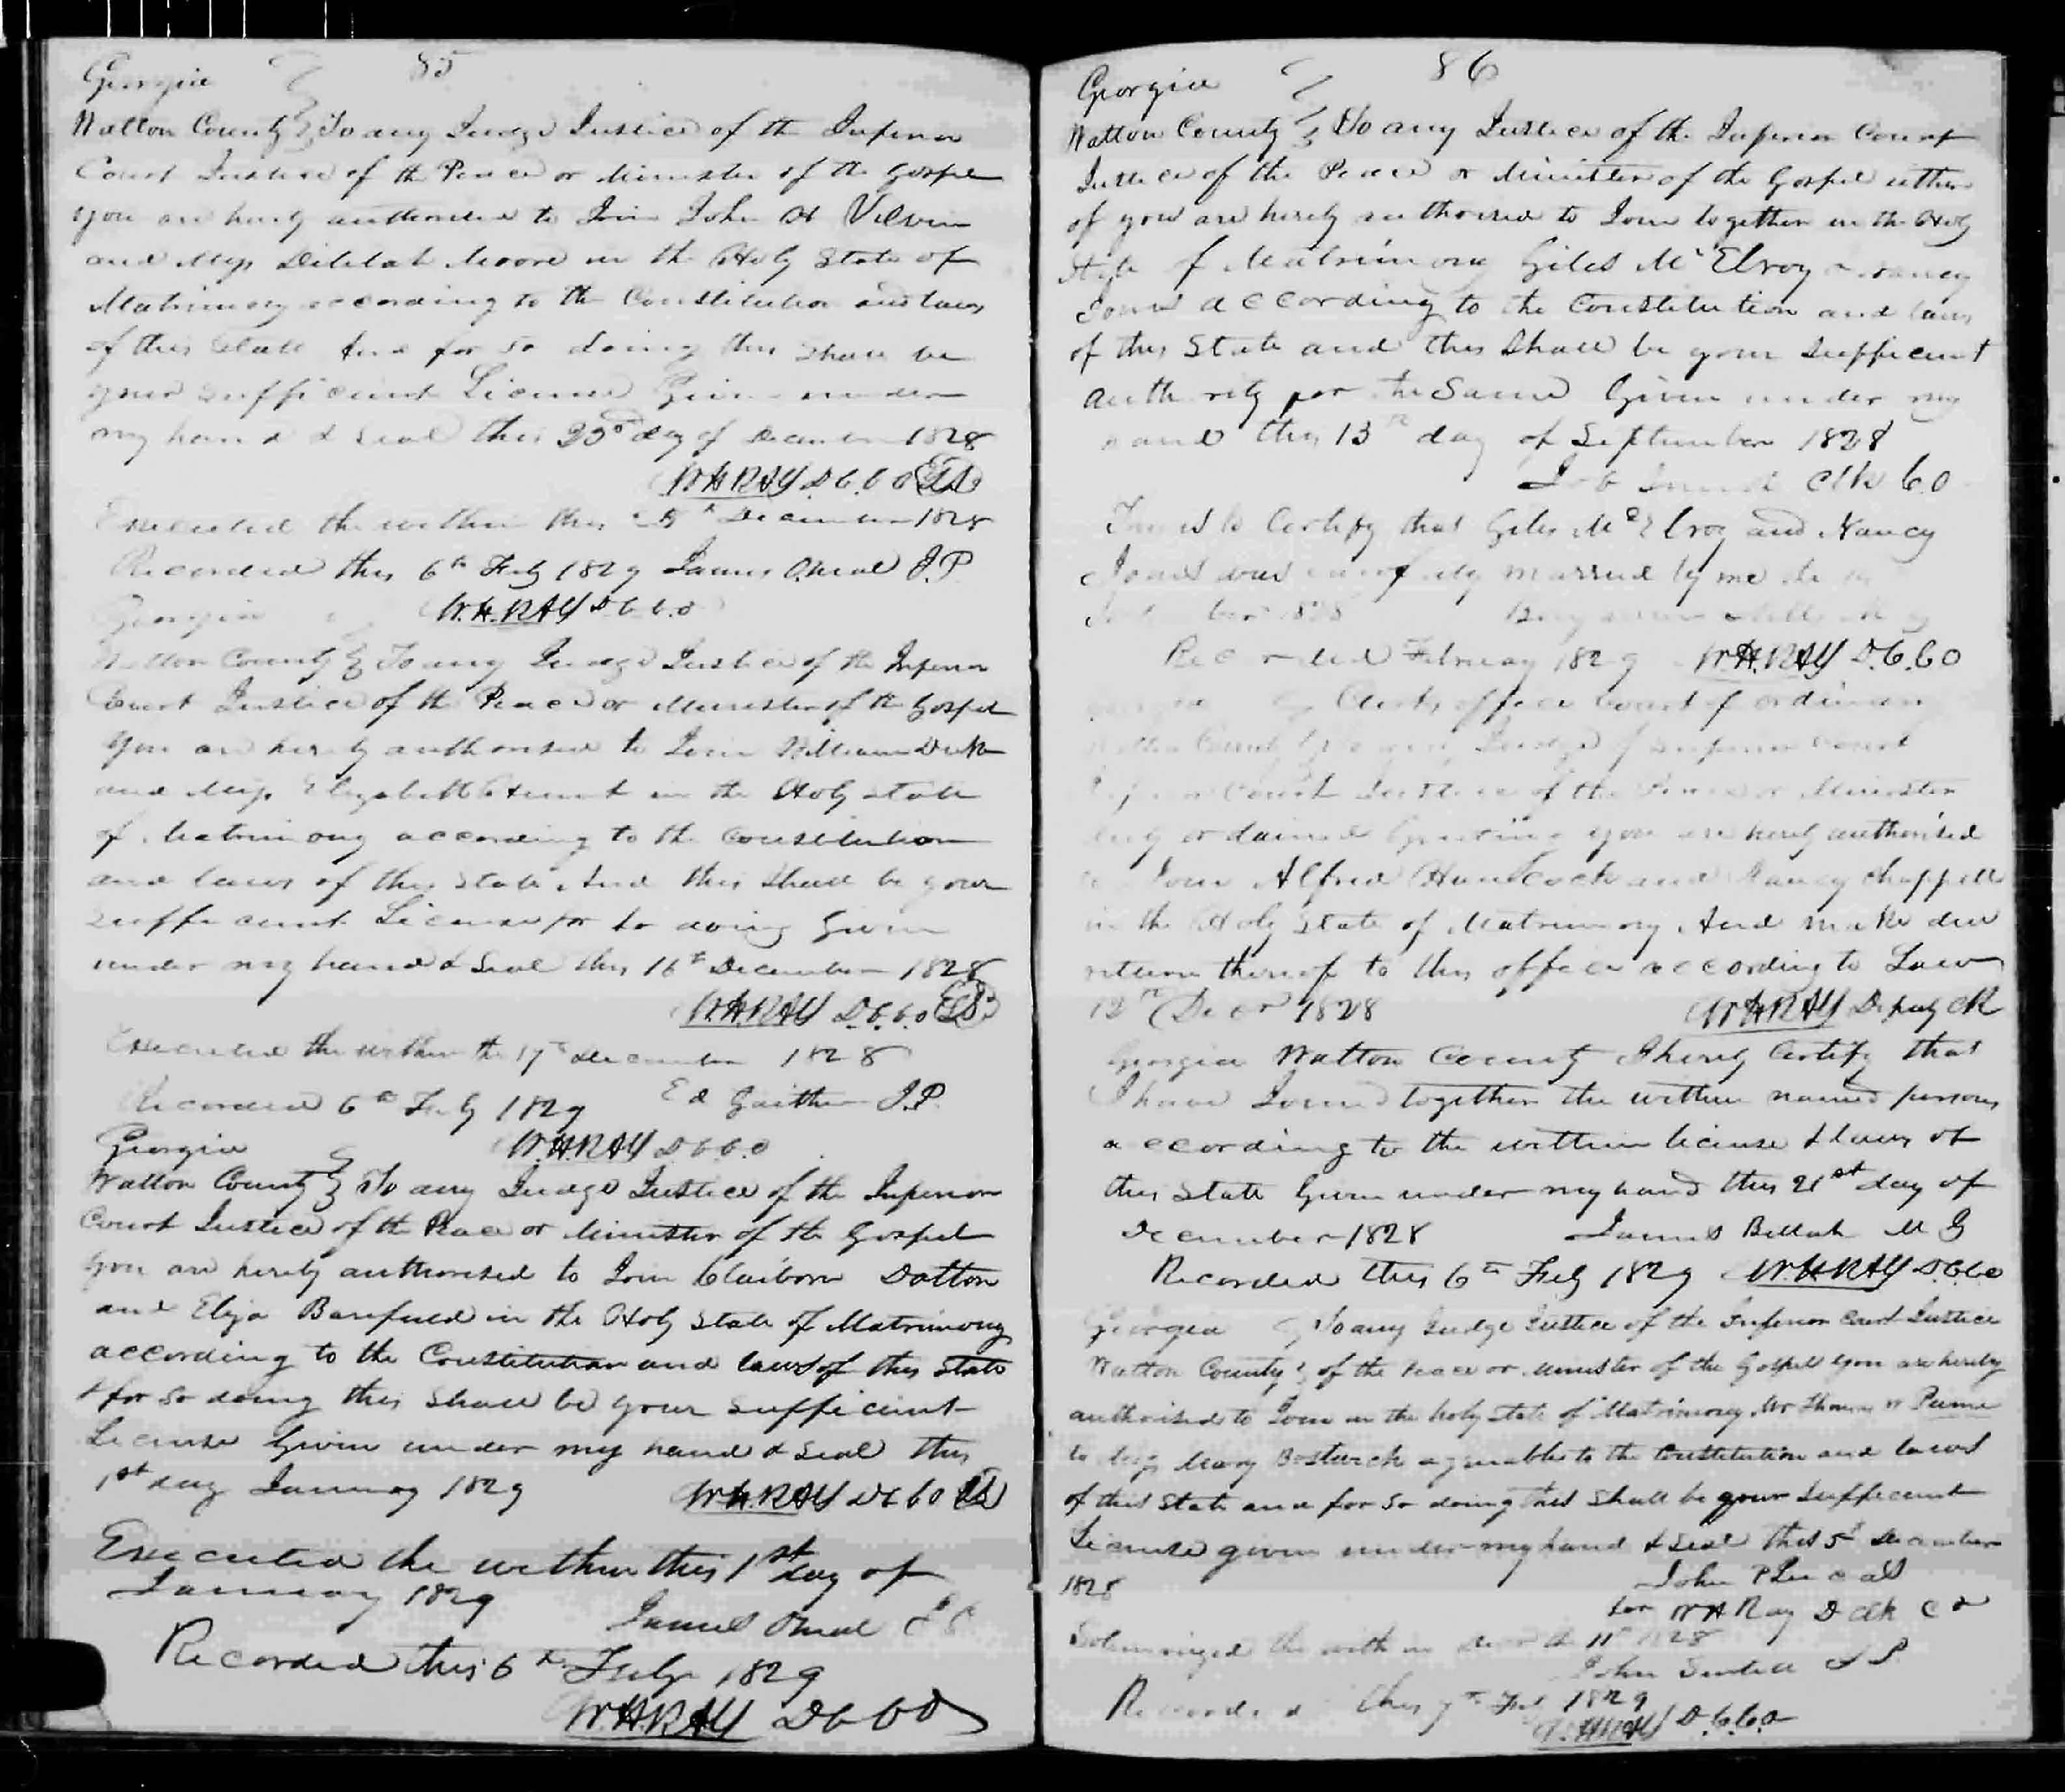 85
Georgia
Walton County } To any Judge Justice of the Inferior
Court Justice of the Peace or Minister of the Gospel
you are hereby authorised to Join John A
and Miss Delilah Moore in the Holy State of
Matrimony according to the Constitution and laws
of this State And for so doing this shall be
your sufficient License Given under
my hand & Seal this day of December 1828
W.H.RAY D.C.C.O LS
Executed the within this December 1828
Recorded this 6th Feby 1829 James Oneal J.P.
W.H.RAY D C C.O
Georgia
Walton County } To any Judge Justice of the Inferior
Court Justice of the Peace or Minister of the Gospel
You are hereby authorised to Join William
and Miss Elizabeth in the Holy State
of Matrimony according to the Constitution
and laws of this State And this Shall be your
sufficient License for so doing Given
under my hand & Seal this 16th December 1828
W.H.RAY D.C.C.O LS
Executed the within the 17th December 1828
Recorded 6th Feby 1829 Ed Gaither J.P.
W.H.RAY D C C.O
Georgia
Walton County } To any Judge Justice of the Inferior
Court Justice of the Peace or Minister of the Gospel
You are hereby authorised to Join Claiborn Dalton
and Eliza Barefield in the Holy State of Matrimony
according to the Constitution and laws of this State
& for so doing this shall be your sufficient
License Given under my hand & Seal this
1st day January 1829 W.H.RAY D C C O LS
Executed the within this 1st day of
January 1829
James Oneal J P
Recorded this 6th Feby 1829
W.H.RAY D C C O
86
Georgia
Walton County } To any Justice of the Inferior Court
Justice of the Peace or Minister of the Gospel either
of you are hereby authorised to Join together in the Holy
State of Matrimony Giles McElroy & Nancy
Jones according to the Constitution and laws
of this State and this Shall be your Sufficient
authority for the Same Given under my
hand this 13th day of September 1828
Clk C.O
This is to Certify that Giles McElroy and Nancy
Jones was lawfully married by me
Recorded February 1829 W.H.RAY D.C.C.O
Georgia Clerks office Court of ordinary
Walton County Judge of Superior Court
Inferior Court Justice of the Peace or Minister
duly ordained Greeting you are hereby authorised
to Join Alfred Hancock and Nancy Chappell
in the Holy State of Matrimony And make due
return thereof to this office according to Law
12th Decr 1828 W.H.RAY Deputy Clk
Georgia Walton County I hereby Certify that
I have Joined together the within named persons
according to the within license & laws of
this State Given under my hand this 21st day of
December 1828 James Bellah M G
Recorded this 6th Feby 1829 W.H.RAY D.C.C.O
Georgia } To any Judge Justice of the Inferior Court Justice
Walton County } of the Peace or Minister of the Gospel you are hereby
authorised to Join in the holy state of Matrimony Mr Thomas
to Miss Mary Bostwick agreeable to the Constitution and laws
of this State and for so doing this Shall be your Sufficient
License given under my hand & Seal this 5th December
1828 John P Lucas
for W H Ray D Clk C O
Solemnized the within 11th 1828
John J P
Recorded this 7th Feb 1829
W.H.RAY D.C.C.O